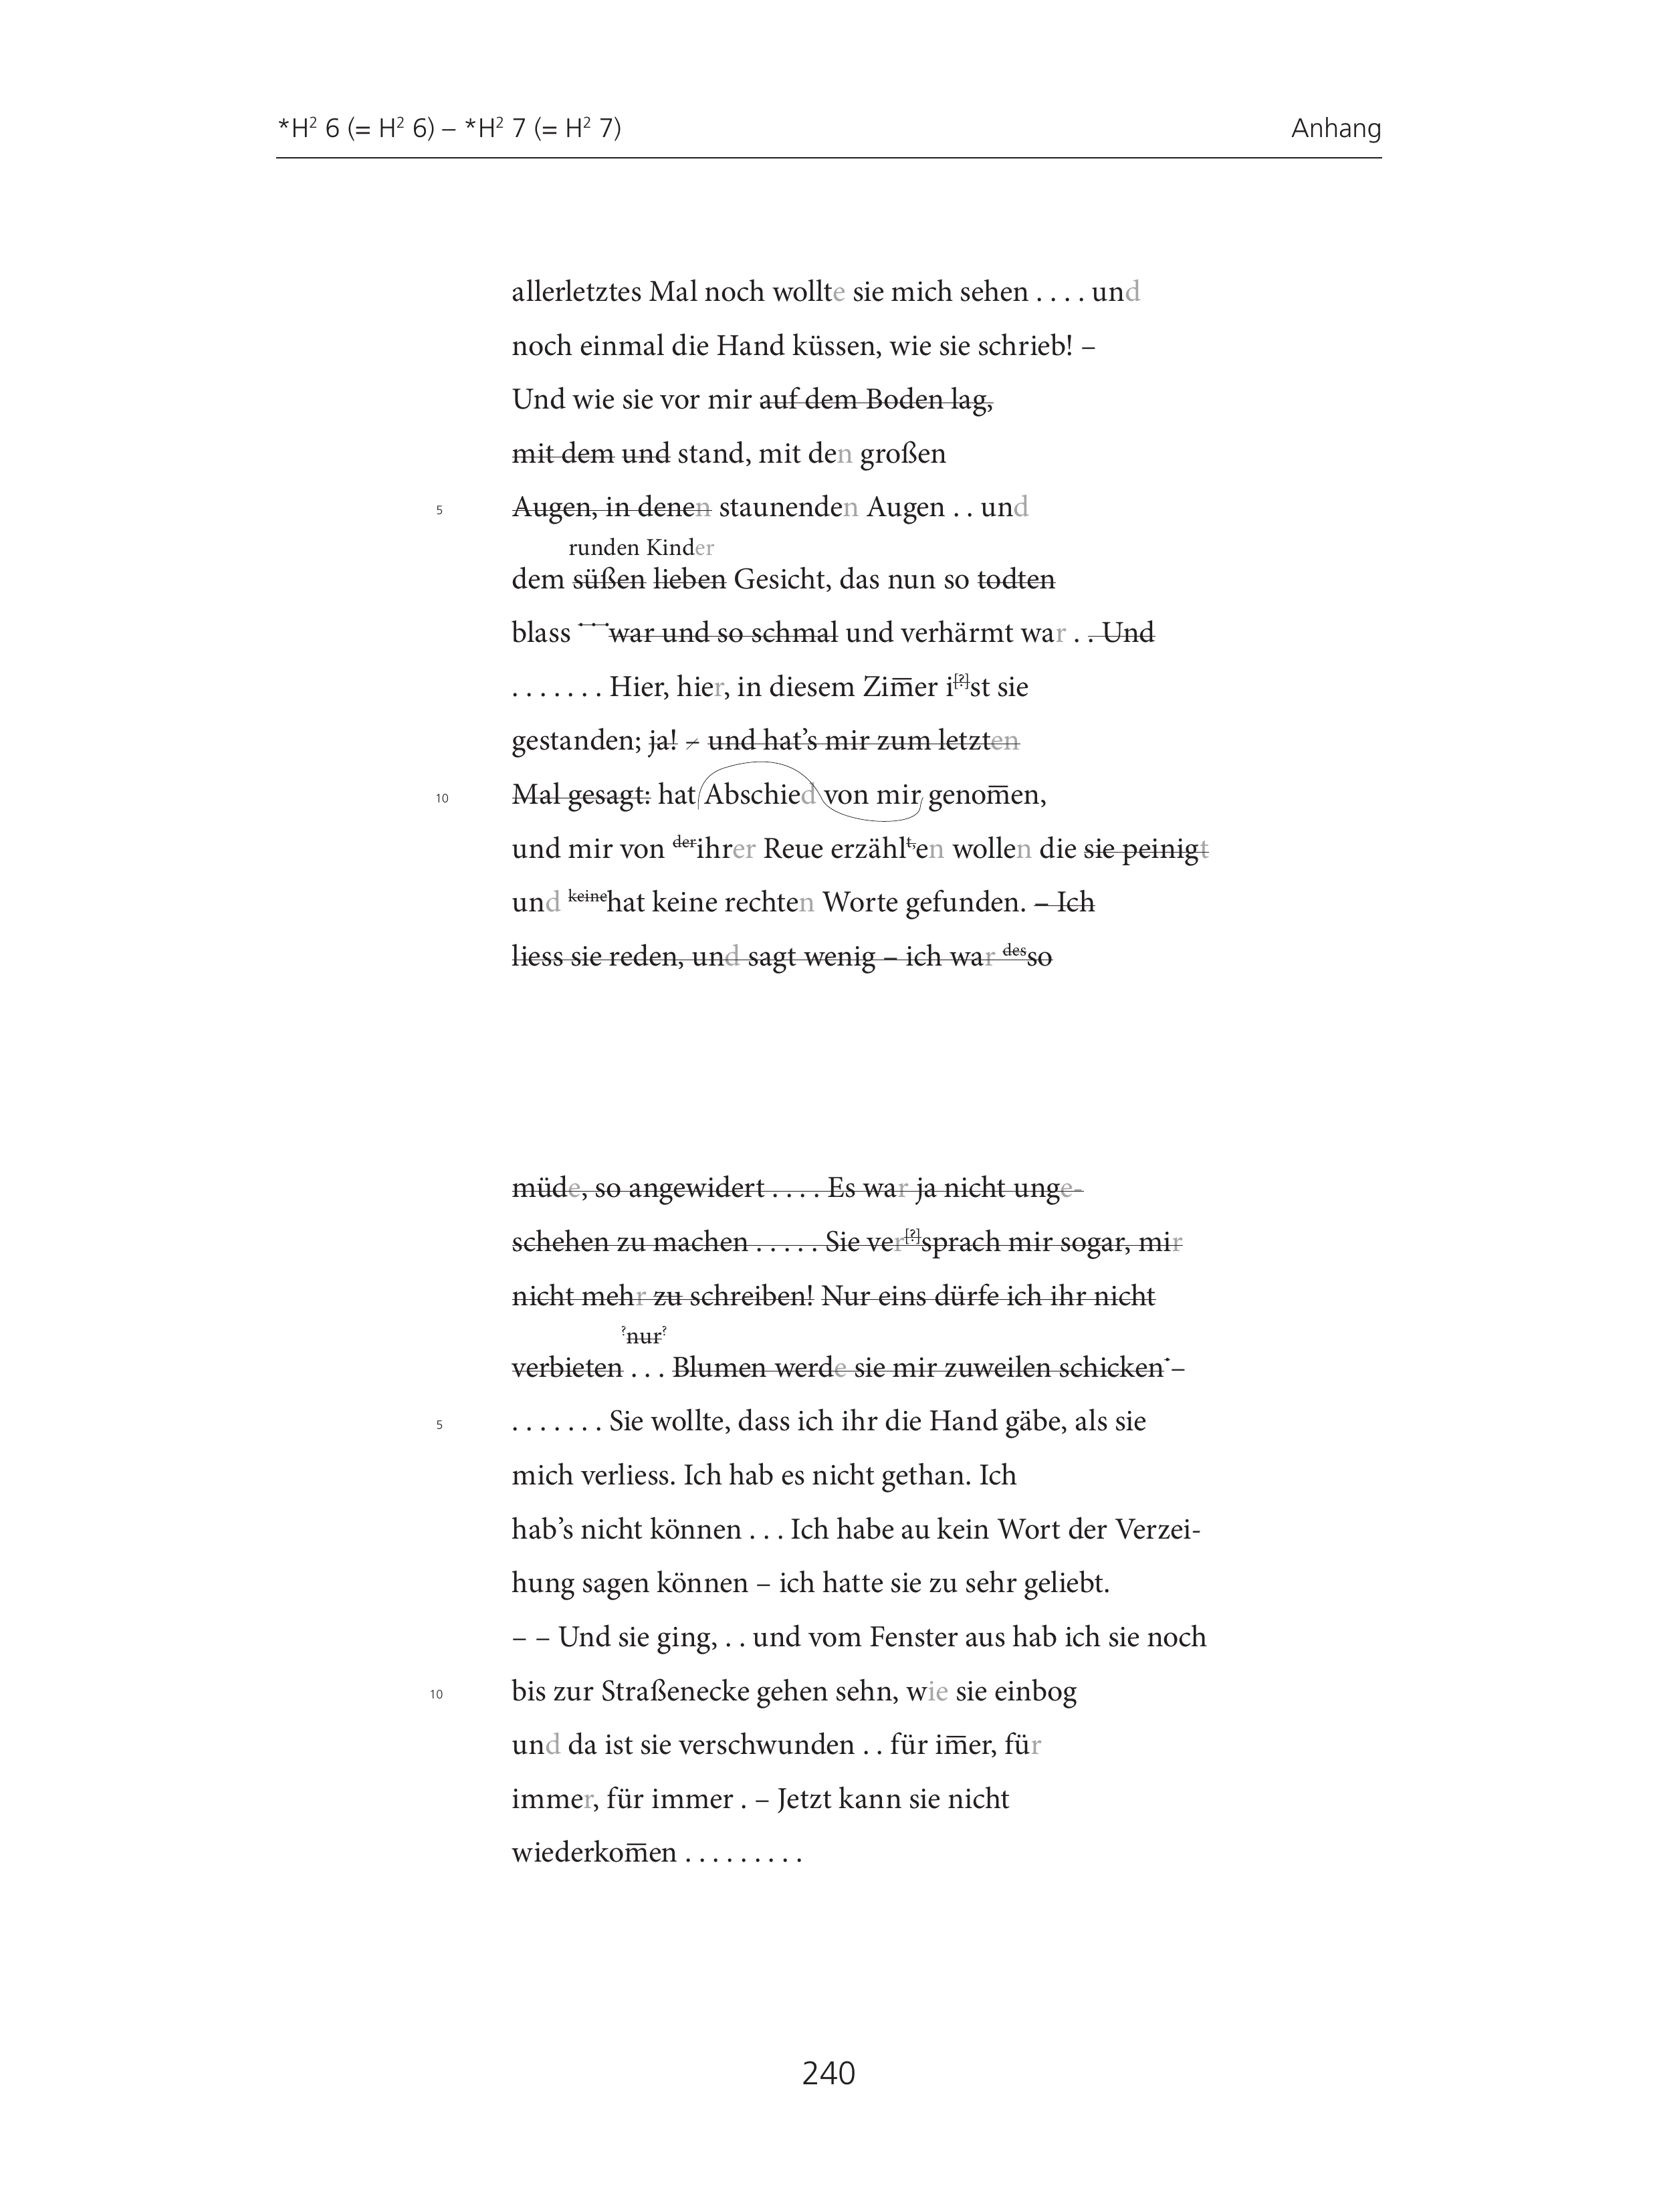 *H² 6 (= H² 6) – *H² 7 (= H² 7)
Anhang
allerletztes Mal noch wollte sie mich sehen . . . . und
noch einmal die Hand küssen, wie sie schrieb! –
Und wie sie vor mir auf dem Boden lag,
mit dem und stand, mit den großen
5 Augen, in denen staunenden Augen . . und
runden Kinder
dem süßen lieben Gesicht, das nun so todten
blass . . . war und so schmal und verhärmt war . . . Und
. . . . . . . Hier, hier, in diesem Zim̅er i[?]st sie
gestanden; ja! – und hat’s mir zum letzten
10 Mal gesagt: hat Abschied von mir genom̅en,
und mir von derihrer Reue erzählt,en wollen die sie peinigt
und keinehat keine rechten Worte gefunden. – Ich
liess sie reden, und sagt wenig – ich war desso
müde, so angewidert . . . . Es war ja nicht unge-
schehen zu machen . . . . . Sie ver[?]sprach mir sogar, mir
nicht mehr zu schreiben! Nur eins dürfe ich ihr nicht
?nur?
verbieten . . . Blumen werde sie mir zuweilen schicken. –
5 . . . . . . . Sie wollte, dass ich ihr die Hand gäbe, als sie
mich verliess. Ich hab es nicht gethan. Ich
hab’s nicht können . . . Ich habe au kein Wort der Verzei-
hung sagen können – ich hatte sie zu sehr geliebt.
– – Und sie ging, . . und vom Fenster aus hab ich sie noch
10 bis zur Straßenecke gehen sehn, wie sie einbog
und da ist sie verschwunden . . für im̅er, für
immer, für immer . – Jetzt kann sie nicht
wiederkom̅en . . . . . . . . .
240